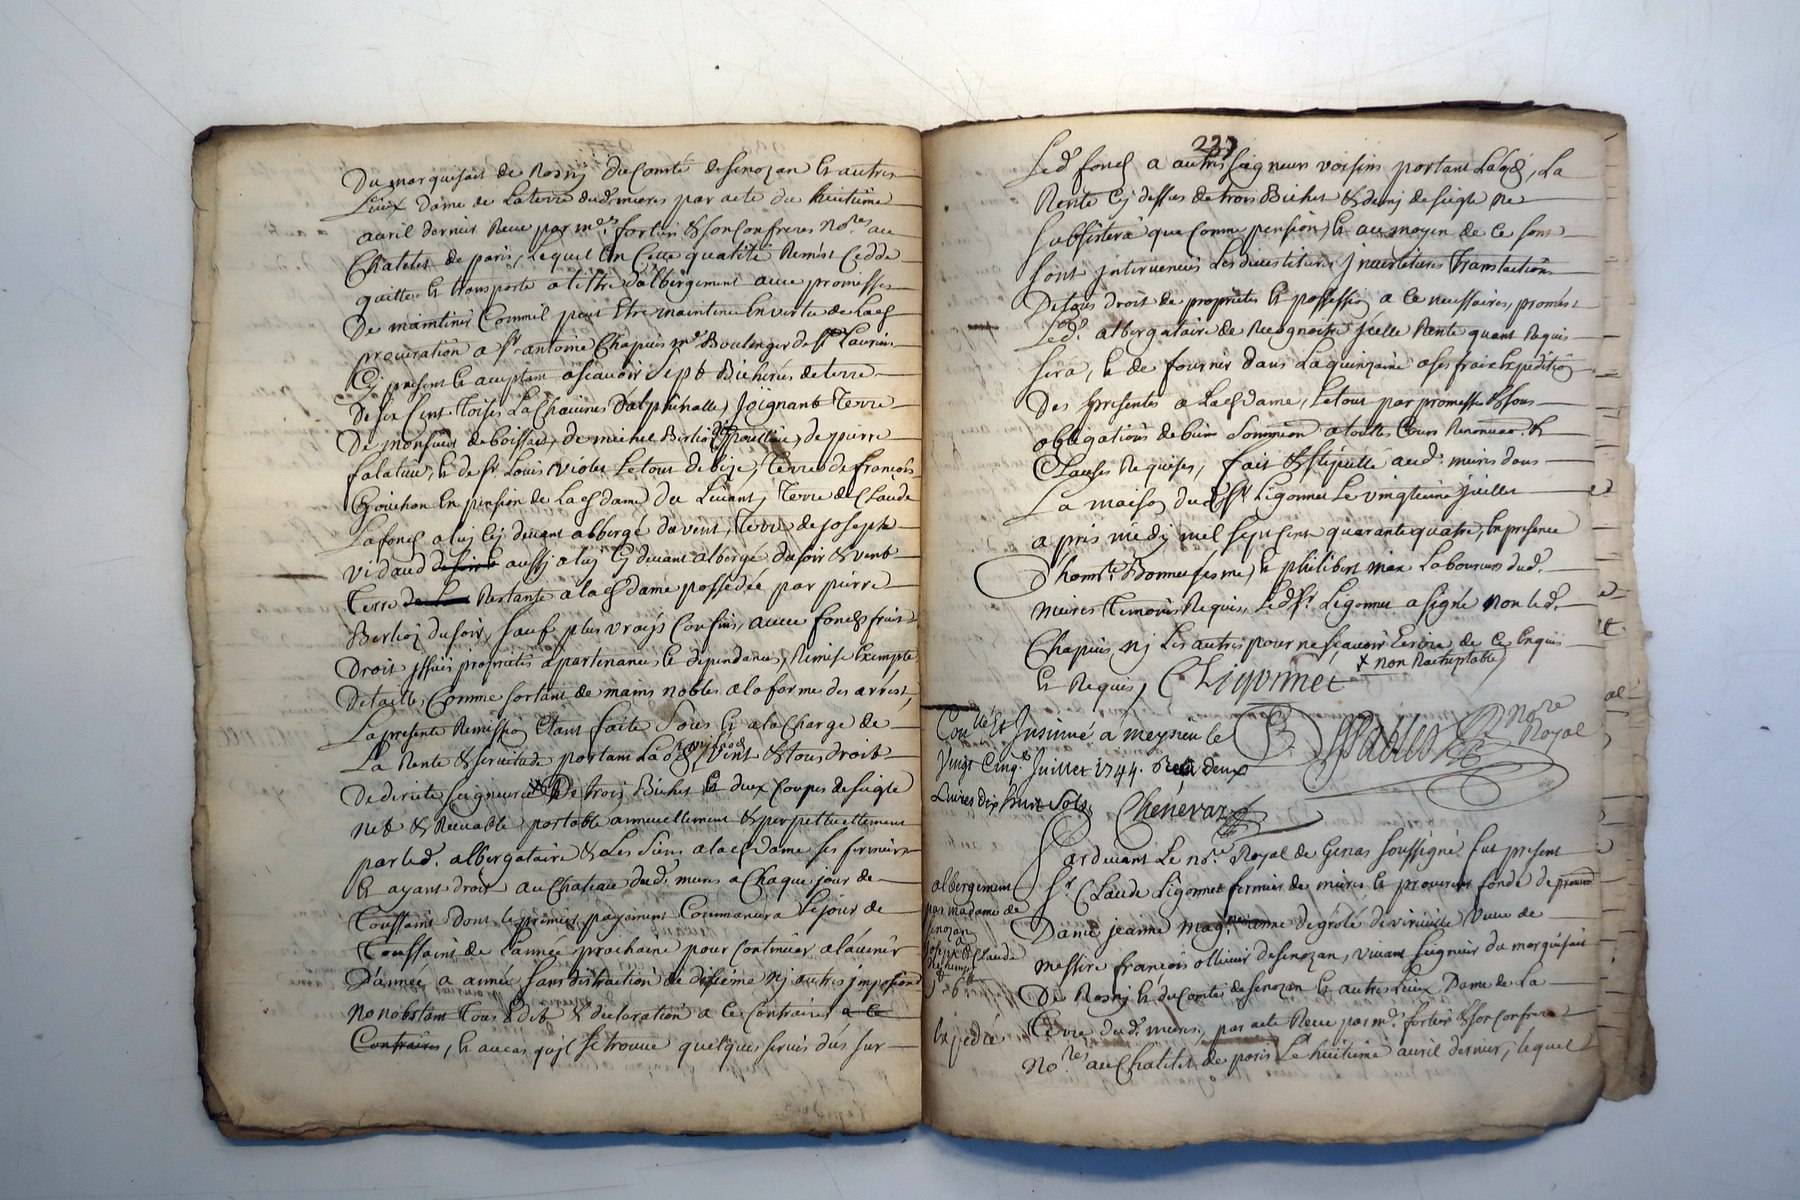 Du marquisat de Rosny du Comté de Senozan et autres
Lieux Dame de La terre dud. mieres par acte du huitieme
avril dernier Receu par me. fortier & son Confrere Nores au
Chatelet de paris, Lequel En Cette qualité Remest Cedde
quitte et transporte a tittre d'albergement avec promesses
De maintenir Comme il peut Etre maintenu En vertu de Lad
procuration a Sr antoine Chapuis Md Boulenger de St Laurins
Cy present et acceptant a scavoir sept Bicherées de terre
De six Cent Toises La Chacune Dalphinalle, Joignant Terre
De Monsieur de boissat, de michel Berlioz de pierre
falatieu, et de Sr Louis violet Le tout de bize, Terre de françois
Gouchon En pension de Lad dame du Levant, Terre de Claude
Lafond a luy Cy devant albergé du vent, Terre de Joseph
vidaud aussy a luy Cy devant albergé du soir & vent
Terre Restante a lad dame possedée par pierre
Berlioz du soir, sauf plus vrays Confins, avec fonds fruits
Droit yssuës proprietés apartenances et dependances, Remise Exempte
De taille, Comme sortant de mains nobles a la forme des arrest,
La presente Remission Etant faite Sous et a la Charge de
La Rente & servitude portant Lods vent & tous droit
De directe seigneurie De trois Bichet et deux Coupes de seigle
Net & Recevable portable annuellement & perpetuellement
par led. albergataire & Les Siens a lad dame ses fermiers
et ayant droit au Chateau dud. mieres a Chaque jour de
Toussaint dont le premier payement Commencera Le jour de
Toussaint de l'année prochaine pour Continuer a l'avenir
D'année a année sans distraction de dixieme Ny autres imposions
Nonobstant tous Edit & declaration a Ce Contraires a Ce
Contraires, et au cas qu'il se trouve quelques servis dus sur
223
Led. fond a autres seigneurs voisins portant Lods, La
Rente Cy dessus de trois Bichet & demy de seigle Ne
subsistera que Comme pension, et au moyen de Ce sont
sont intervenües Les divestitures investitures Translactions
De tous droit de proprietés et possession a Ce necessaires, promest
Led. albergataire de Recognoitre jcelle Rente quant Requis
sera, et de fournir dans La quinzaine a ses frais Expedition
Des presentes a Lad dame, Le tout par promesse & sous
obligations de biens Soumission a toutes Cours Renonciaon. et
Clauses Requises, fait & stipullé aud. mieres dans
La maison dud Sr Ligonnet Le vingtieme juillet
apris midy mil sept Cent quarante quatre, En presence
D'honte. Bonnefesme, et philibert Laboureurs dud.
mieres temoins Requis. Led Sr. Ligonnet a signé non led.
Chapuis ny Les autres pour ne sçavoir Ecrire de Ce Enquis
et Requis,
x non Racheptable
C Ligonnet
Nore Royal
Conlé et Insinué a meyzieu le
Vingt Cinqe Juillet 1744. Receu deux
Livres dix huit Sols Chenevaz
Pardevant Le Nore. Royal de Genas soussigné fut present
Sr Claude Ligonnet fermier de mieres et procureur fondé de
Dame jeanne mag. de grolé de virieville veuve de
messire françois ollivier de Senozan, vivant seigneur du marquisat
De Rosny et du Comté de Senozan et autres Lieux Dame de La
Terre dud. mieres, par acte Receu par me. fortier & son Confrere
Nores. au Chatelet de paris Le huitieme avril dernier, lequel
albergement
par madame de
Senozan
a
Claude
Expedié